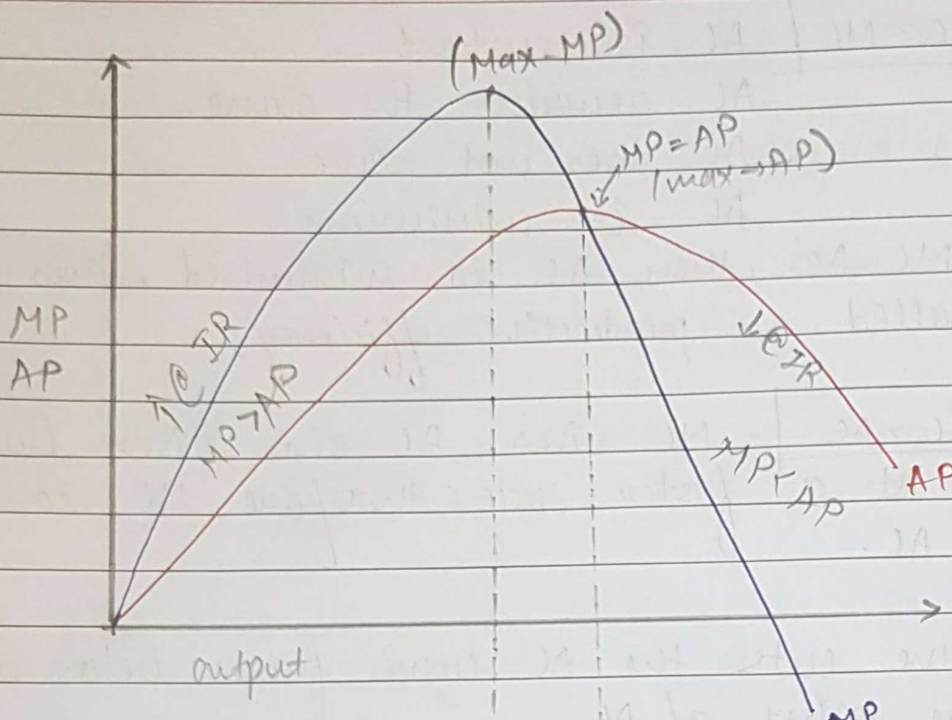 (Max-MP)
MP=AP
(max→AP)
MP
AP
↑@ IR
MP>AP
↓@IR
MP<AP
AP
output
MP